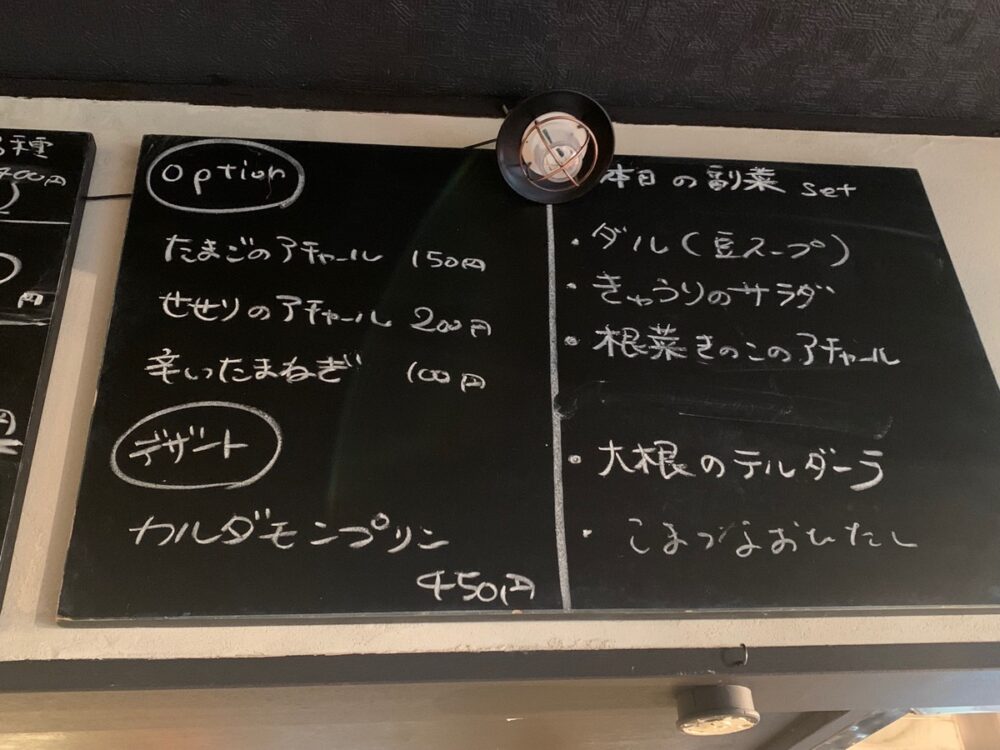 種
400円
円
円
Option
たまごのアチャール 150円
せせりのアチャール 200円
辛いたまねぎ 100円
デザート
カルダモンプリン
450円
本日の副菜 set
・ダル(豆スープ)
・きゅうりのサラダ
・根菜きのこのアチャール
・大根のテルダーラ
・こまつなおひたし